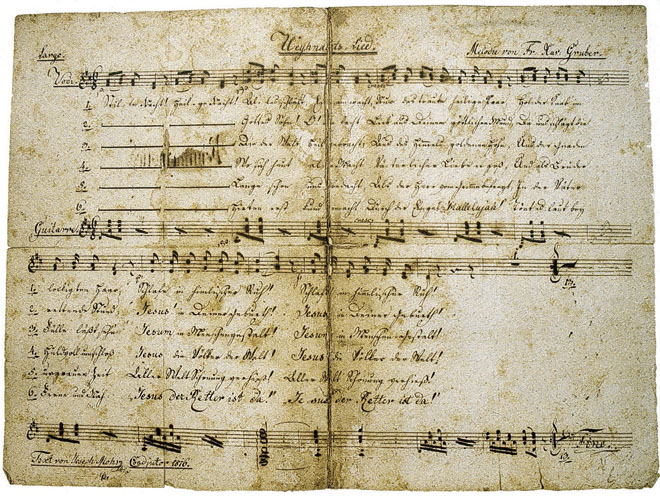 Weyhnachts-Lied.
Largo. Melodie von Fr. Xav. Gruber.
Voce
1. Stille Nacht! Heilige Nacht! Alles schläft. Einsam wacht, Nur das traute heilige Paar. Holder Knab im
2. Gottes Sohn! O! wie lacht Lieb aus Deinem göttlichen Mund, Da uns schlägt die
3. Die der Welt Heil gebracht, Aus des Himmels goldenen Höhn, Aus der Gnaden
4. Wo sich heut alle Macht Väterlicher Liebe ergoß, Und als Bruder
5. Lange schon uns bedacht, Als der Herr vom Grimme befreyt, In der Väter
6. Hirten erst kundgemacht Durch der Engel Hallelujah! Tönt es laut bey
Guitarre.
1. lockigten Haar, Schlafe in himmlischer Ruh! Schlafe in himmlischer Ruh!
2. rettende Stund, Jesus! in Deiner Geburth! Jesus in Deiner Geburth!
3. Fülle läßt sehn Jesum in Menschengestalt! Jesum in Menschengestalt!
4. Huldvoll umschloß Jesus die Völker der Welt! Jesus die Völker der Welt!
5. urgrauer Zeit Aller Welt Schonung verhieß! Aller Welt Schonung verhieß!
6. Ferne und Nah: Jesus der Retter ist da! Jesus der Retter ist da!
Fine.
Text von Joseph Mohr Coadjutor 1816.